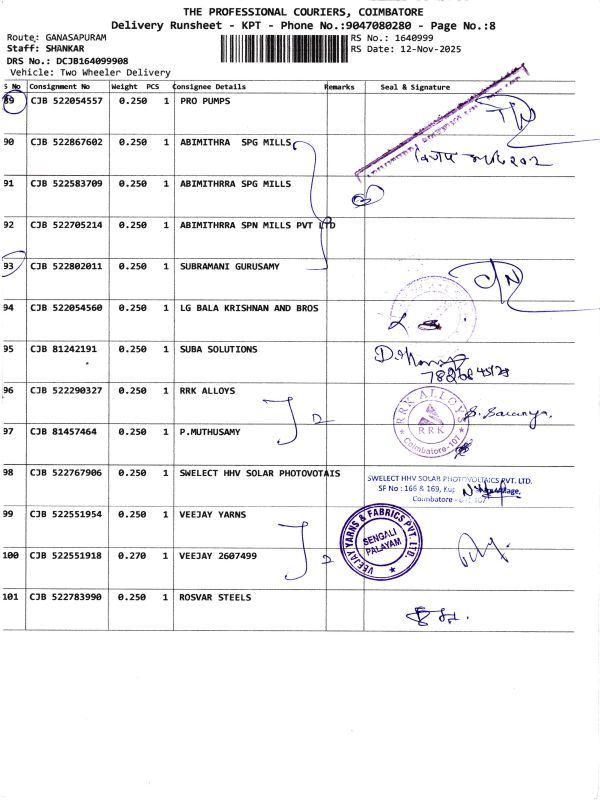 THE PROFESSIONAL COURIERS, COIMBATORE
Delivery Runsheet - KPT - Phone No.:9047080280 - Page No.:8
Route: GANASAPURAM RS No.: 1640999
Staff: SHANKAR RS Date: 12-Nov-2025
DRS No.: DCJB164099908
Vehicle: Two Wheeler Delivery
S No Consignment No Weight PCS Consignee Details Remarks Seal & Signature
89 CJB 522054557 0.250 1 PRO PUMPS
90 CJB 522867602 0.250 1 ABIMITHRA SPG MILLS
91 CJB 522583709 0.250 1 ABIMITHRRA SPG MILLS
92 CJB 522705214 0.250 1 ABIMITHRRA SPN MILLS PVT LTD
93 CJB 522802011 0.250 1 SUBRAMANI GURUSAMY
94 CJB 522054560 0.250 1 LG BALA KRISHNAN AND BROS
95 CJB 81242191 0.250 1 SUBA SOLUTIONS
96 CJB 522290327 0.250 1 RRK ALLOYS
RRK ALLOYS
RRK
Coimbatore-107
97 CJB 81457464 0.250 1 P.MUTHUSAMY
98 CJB 522767906 0.250 1 SWELECT HHV SOLAR PHOTOVOTAIS
SWELECT HHV SOLAR PHOTOVOLTAICS PVT. LTD.
SF No : 166 & 169,
Coimbatore
99 CJB 522551954 0.250 1 VEEJAY YARNS
VEEJAY YARNS & FABRICS PVT. LTD.
SENGALI
PALAYAM
100 CJB 522551918 0.270 1 VEEJAY 2607499
101 CJB 522783990 0.250 1 ROSVAR STEELS